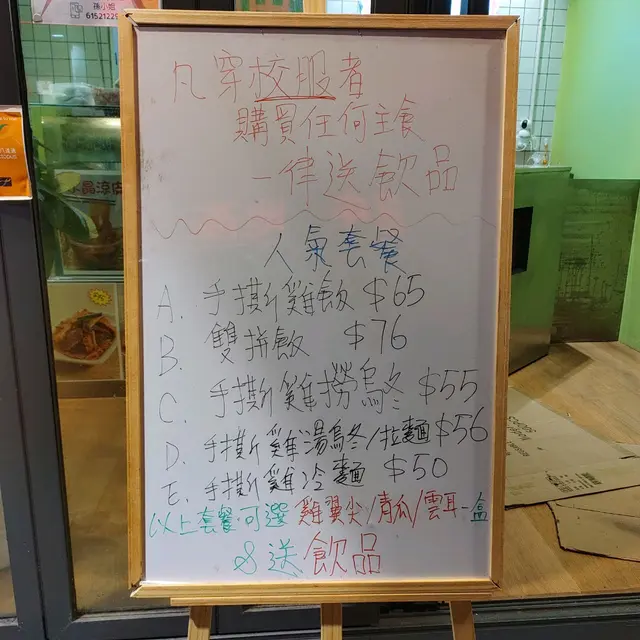 孫小姐
61521229
凡穿校服者
購買任何主食
一律送飲品
人氣套餐
A. 手撕雞飯 $65
B. 雙拼飯 $76
C. 手撕雞撈烏冬 $55
D. 手撕雞湯烏冬/拉麵 $56
E. 手撕雞冷麵 $50
以上套餐可選 雞翼尖/青瓜/雲耳一盒
&送飲品